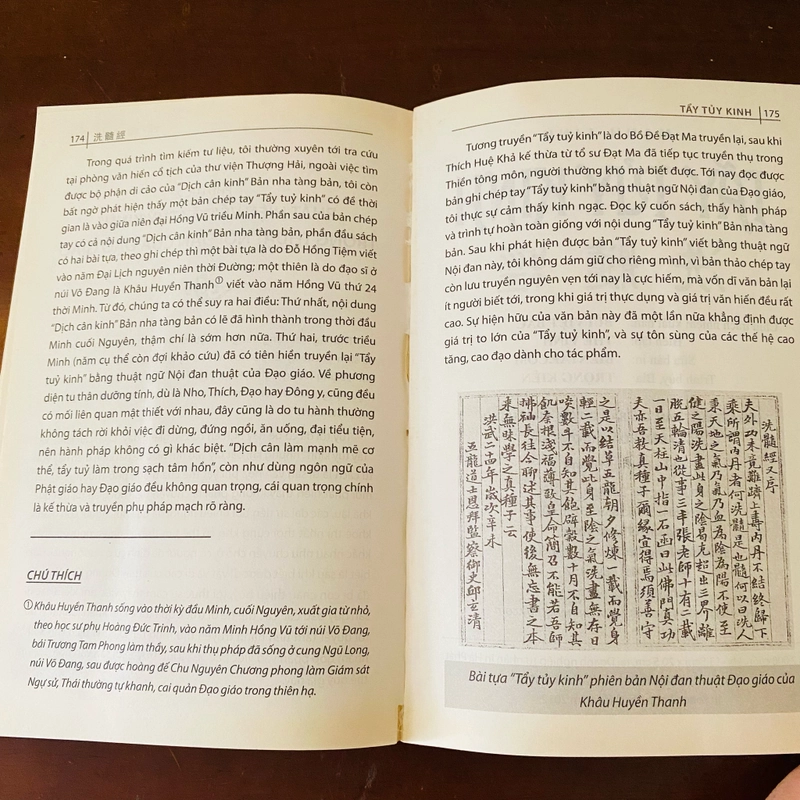 174 洗髓經
Trong quá trình tìm kiếm tư liệu, tôi thường xuyên tới tra cứu
tại phòng văn hiến cổ tịch của thư viện Thượng Hải, ngoài việc tìm
được bộ phận di cảo của "Dịch cân kinh" Bản nha tàng bản, tôi còn
bất ngờ phát hiện thấy một bản chép tay "Tẩy tuỷ kinh" có đề thời
gian là vào giữa niên đại Hồng Vũ triều Minh. Phần sau của bản chép
tay có cả nội dung "Dịch cân kinh" Bản nha tàng bản, phần đầu sách
có hai bài tựa, theo ghi chép thì một bài tựa là do Đỗ Hồng Tiệm viết
vào năm Đại Lịch nguyên niên thời Đường; một thiên là do đạo sĩ ở
núi Võ Đang là Khâu Huyền Thanh① viết vào năm Hồng Vũ thứ 24
thời Minh. Từ đó, chúng ta có thể suy ra hai điều: Thứ nhất, nội dung
"Dịch cân kinh" Bản nha tàng bản có lẽ đã hình thành trong thời đầu
Minh cuối Nguyên, thậm chí là sớm hơn nữa. Thứ hai, trước triều
Minh (năm cụ thể còn đợi khảo cứu) đã có tiên hiền truyền lại "Tẩy
tuỷ kinh" bằng thuật ngữ Nội đan thuật của Đạo giáo. Về phương
diện tu thân dưỡng tính, dù là Nho, Thích, Đạo hay Đông y, cũng đều
có mối liên quan mật thiết với nhau, đây cũng là do tu hành thường
không tách rời khỏi việc đi dừng, đứng ngồi, ăn uống, đại tiểu tiện,
nên hành pháp không có gì khác biệt. "Dịch cân làm mạnh mẽ cơ
thể, tẩy tuỷ làm trong sạch tâm hồn", còn như dùng ngôn ngữ của
Phật giáo hay Đạo giáo đều không quan trọng, cái quan trọng chính
là kế thừa và truyền phụ pháp mạch rõ ràng.
CHÚ THÍCH
① Khâu Huyền Thanh sống vào thời kỳ đầu Minh, cuối Nguyên, xuất gia từ nhỏ,
theo học sư phụ Hoàng Đức Trinh, vào năm Minh Hồng Vũ tới núi Võ Đang,
bái Trương Tam Phong làm thầy, sau khi thụ pháp đã sống ở cung Ngũ Long,
núi Võ Đang, sau được hoàng đế Chu Nguyên Chương phong làm Giám sát
Ngự sử, Thái thường tự khanh, cai quản Đạo giáo trong thiên hạ.
TẨY TỦY KINH 175
Tương truyền "Tẩy tuỷ kinh" là do Bồ Đề Đạt Ma truyền lại, sau khi
Thích Huệ Khả kế thừa từ tổ sư Đạt Ma đã tiếp tục truyền thụ trong
Thiền tông môn, người thường khó mà biết được. Tới nay đọc được
bản ghi chép tay "Tẩy tuỷ kinh" bằng thuật ngữ Nội đan của Đạo giáo,
tôi thực sự cảm thấy kinh ngạc. Đọc kỹ cuốn sách, thấy hành pháp
và trình tự hoàn toàn giống với nội dung "Tẩy tuỷ kinh" Bản nha tàng
bản. Sau khi phát hiện được bản "Tẩy tuỷ kinh" viết bằng thuật ngữ
Nội đan này, tôi không dám giữ cho riêng mình, vì bản thảo chép tay
còn lưu truyền nguyên vẹn tới nay là cực hiếm, mà vốn dĩ văn bản lại
ít người biết tới, trong khi giá trị thực dụng và giá trị văn hiến đều rất
cao. Sự hiện hữu của văn bản này đã một lần nữa khẳng định được
giá trị to lớn của "Tẩy tuỷ kinh", và sự tôn sùng của các thế hệ cao
tăng, cao đạo dành cho tác phẩm.
洗髓經又序
夫外功來竟難躋上壽内丹不結終歸下
乘所謂内丹者何洗髓是也髓何以曰洗人
秉天地之氣乃氣乃血為陰為陽不使至
健之陽洗盡此身之陰曷克超出三界離
脱五輪清也從事三丰張老師十有二載
一日至天柱山中指一石函曰此佛門真功
夫亦吾教真種子爾緣宜得焉須善守
之是以結草五龍朝夕修煉一載而覺身
輕二載而覺此身至陰之氣洗盡無存日
啖數斗不自知其飽辟穀數十月不自知其
飢奈根淺福薄敕皇命簡召不能若吾師
拂袖長往今聊述其事使後無忘書之本
來無昧學之真種子云
洪武二十四年歲次辛未
五龍道士恩拜監察御史邱玄清
Bài tựa "Tẩy tủy kinh" phiên bản Nội đan thuật Đạo giáo của
Khâu Huyền Thanh